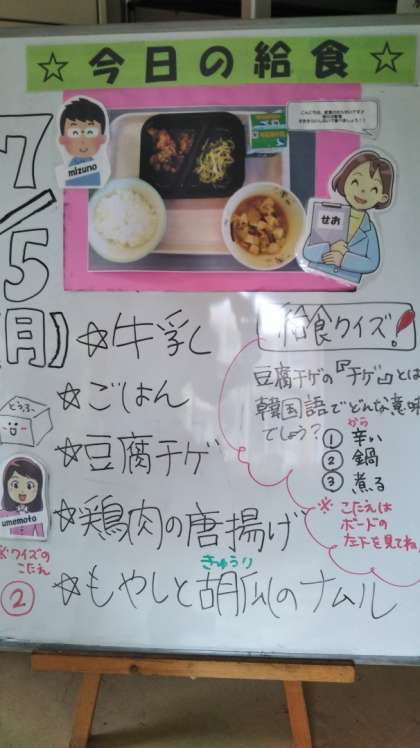 ☆ 今日の給食 ☆
mizuno
せお
7/5
(月)
☆牛乳
☆ごはん
☆豆腐チゲ
☆鶏肉の唐揚げ
きゅうり
☆もやしと胡瓜のナムル
給食クイズ!
豆腐チゲの『チゲ』とは
韓国語でどんな意味
でしょう?
から
① 辛い
② 鍋
③ 煮る
※ こたえは
ボードの
左下を見てね
とうふ
umemoto
※クイズの
こたえ
②